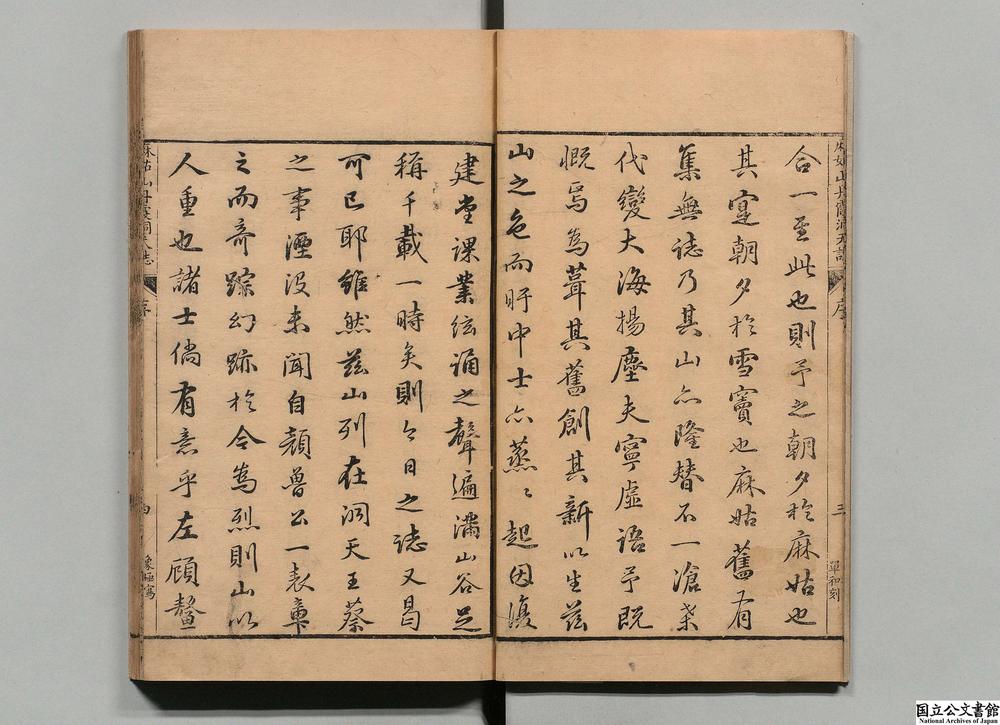 合一至此也則予之朝夕於麻姑也
其寔朝夕於雪竇也麻姑舊有
集無誌乃其山亦隆替不一滄桑
代變大海揚塵夫寧虛語予既
慨焉為葺其舊創其新以生茲
山之色而盱中士亦蒸〻起因復
建堂課業絃誦之聲遍滿山谷足
稱千載一時矣則今日之誌又曷
可已耶雖然茲山列在洞天王蔡
之事湮沒未聞自顏魯公一表章
之而奇蹤幻跡於今為烈則山以
人重也諸士倘有意乎左顧鼇
麻姑山丹霞洞天誌
序
三
單和刻
麻姑山丹霞洞天誌
序
四
國立公文書館
National Archives of Japan